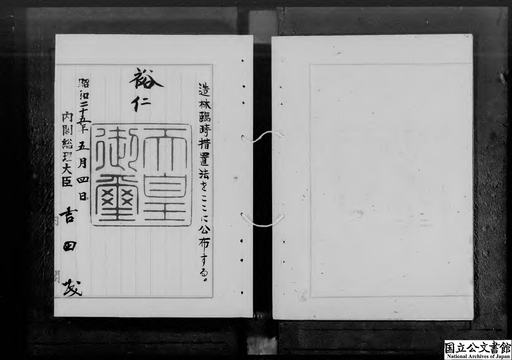 造林臨時措置法をここに公布する。
裕仁
天皇
御璽
昭和二十五年五月四日
内閣総理大臣 吉田茂
国立公文書館
National Archives of Japan